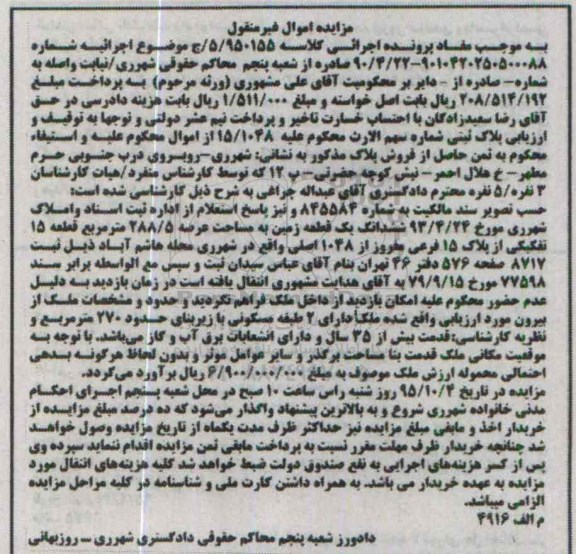 مزایده اموال غیرمنقول
به موجب مفاد پرونده اجرائی کلاسه ۹۵۰۱۵۵/۵/ج موضوع اجرائیه شماره
۹۰۱۰۴۲۰۲۵۰۵۰۰۰۸۸-۹۰/۴/۲۲ صادره از شعبه پنجم محاکم حقوقی شهرری/نیابت واصله به
شماره- صادره از - دایر بر محکومیت آقای علی مشهوری (ورثه مرحوم) به پرداخت مبلغ
۲۰۸/۵۱۴/۱۹۲ ریال بابت اصل خواسته و مبلغ ۱/۵۱۱/۰۰۰ ریال بابت هزینه دادرسی در حق
آقای رضا سعیدزادگان با احتساب خسارت تاخیر و پرداخت نیم عشر دولتی و توجها به توقیف و
ارزیابی پلاک ثبتی شماره سهم الارث محکوم علیه ۱۵/۱۰۴۸ از اموال محکوم علیه و استیفاء
محکوم به ثمن حاصل از فروش پلاک مذکور به نشانی: شهرری-روبروی درب جنوبی حرم
مطهر- خ هلال احمر- نبش کوچه حضرتی- پ ۱۲ که توسط کارشناس منفرد/هیات کارشناسان
۳ نفره/۵ نفره محترم دادگستری آقای عبداله چراغی به شرح ذیل کارشناسی شده است:
حسب تصویر سند مالکیت به شماره ۸۴۵۵۸۴ و نیز پاسخ استعلام از اداره ثبت اسناد واملاک
شهرری مورخ ۹۳/۴/۲۴ ششدانگ یک قطعه زمین به مساحت عرصه ۲۸۸/۵ مترمربع قطعه ۱۵
تفکیکی از پلاک ۱۵ فرعی مفروز از ۱۰۴۸ اصلی واقع در شهرری محله هاشم آباد ذیل ثبت
۸۷۱۷ صفحه ۵۷۶ دفتر ۴۶ تهران بنام آقای عباس سیدان ثبت و سپس مع الواسطه برابر سند
۷۷۵۹۸ مورخ ۷۹/۹/۱۵ به آقای هدایت مشهوری انتقال یافته است در زمان بازدید به دلیل
عدم حضور محکوم علیه امکان بازدید از داخل ملک فراهم نگردید و حدود و مشخصات ملک از
بیرون مورد ارزیابی واقع شده ملک دارای ۲ طبقه مسکونی با زیربنای حدود ۲۷۰ مترمربع و
نظریه کارشناسی:قدمت بیش از ۳۵ سال و دارای انشعابات برق آب و گاز می‌باشد. با توجه به
موقعیت مکانی ملک قدمت بنا مساحت برگذر و سایر عوامل موثر و بدون لحاظ هرگونه بدهی
احتمالی محموله ارزش ملک موصوف به مبلغ ۶/۹۰۰/۰۰۰/۰۰۰ ریال برآورد می‌گردد.
مزایده در تاریخ ۹۵/۱۰/۴ روز شنبه راس ساعت ۱۰ صبح در محل شعبه پنجم اجرای احکام
مدنی خانواده شهرری شروع و به بالاترین پیشنهاد واگذار می‌شود که ده درصد مبلغ مزایده از
خریدار اخذ و مابقی مبلغ مزایده نیز حداکثر ظرف مدت یکماه از تاریخ مزایده وصول خواهد
شد چنانچه خریدار ظرف مهلت مقرر نسبت به پرداخت مابقی ثمن مزایده اقدام ننماید سپرده وی
پس از کسر هزینه‌های اجرایی به نفع صندوق دولت ضبط خواهد شد کلیه هزینه‌های انتقال مورد
مزایده به عهده خریدار می باشد. به همراه داشتن کارت ملی و شناسنامه در کلیه مراحل مزایده
الزامی میباشد.
م الف ۴۹۱۶
دادورز شعبه پنجم محاکم حقوقی دادگستری شهرری – روزبهانی